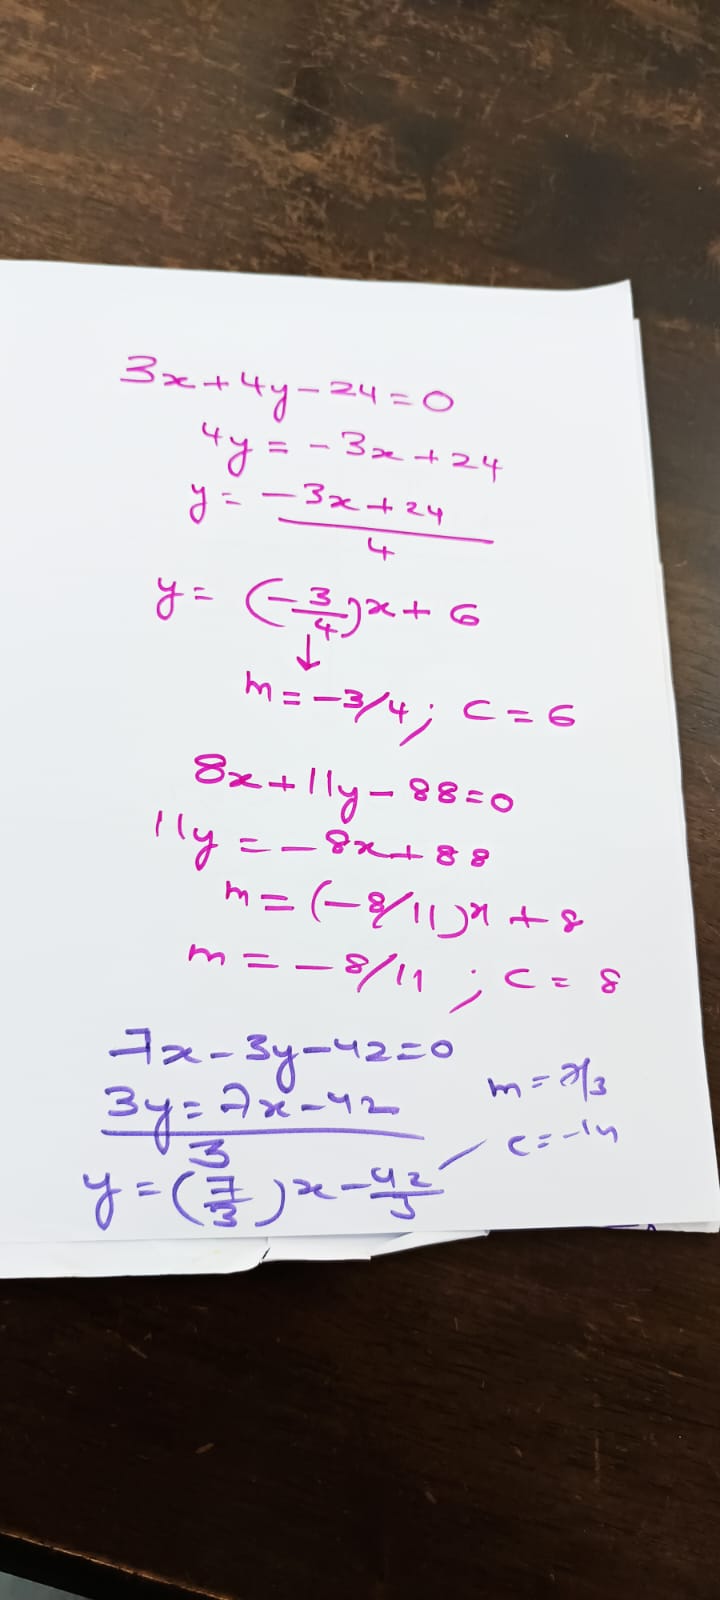 3x+4y-24=0
4y = -3x+24
y = -3x+24
4
y = (-3/4)x + 6
↓
m = -3/4; c = 6
8x+11y-88=0
11y = -8x+88
m = (-8/11)x + 8
m = -8/11 ; c = 8
7x-3y-42=0
3y = 7x-42
3
y = (7/3)x - 42/3
m = 7/3
c = -14